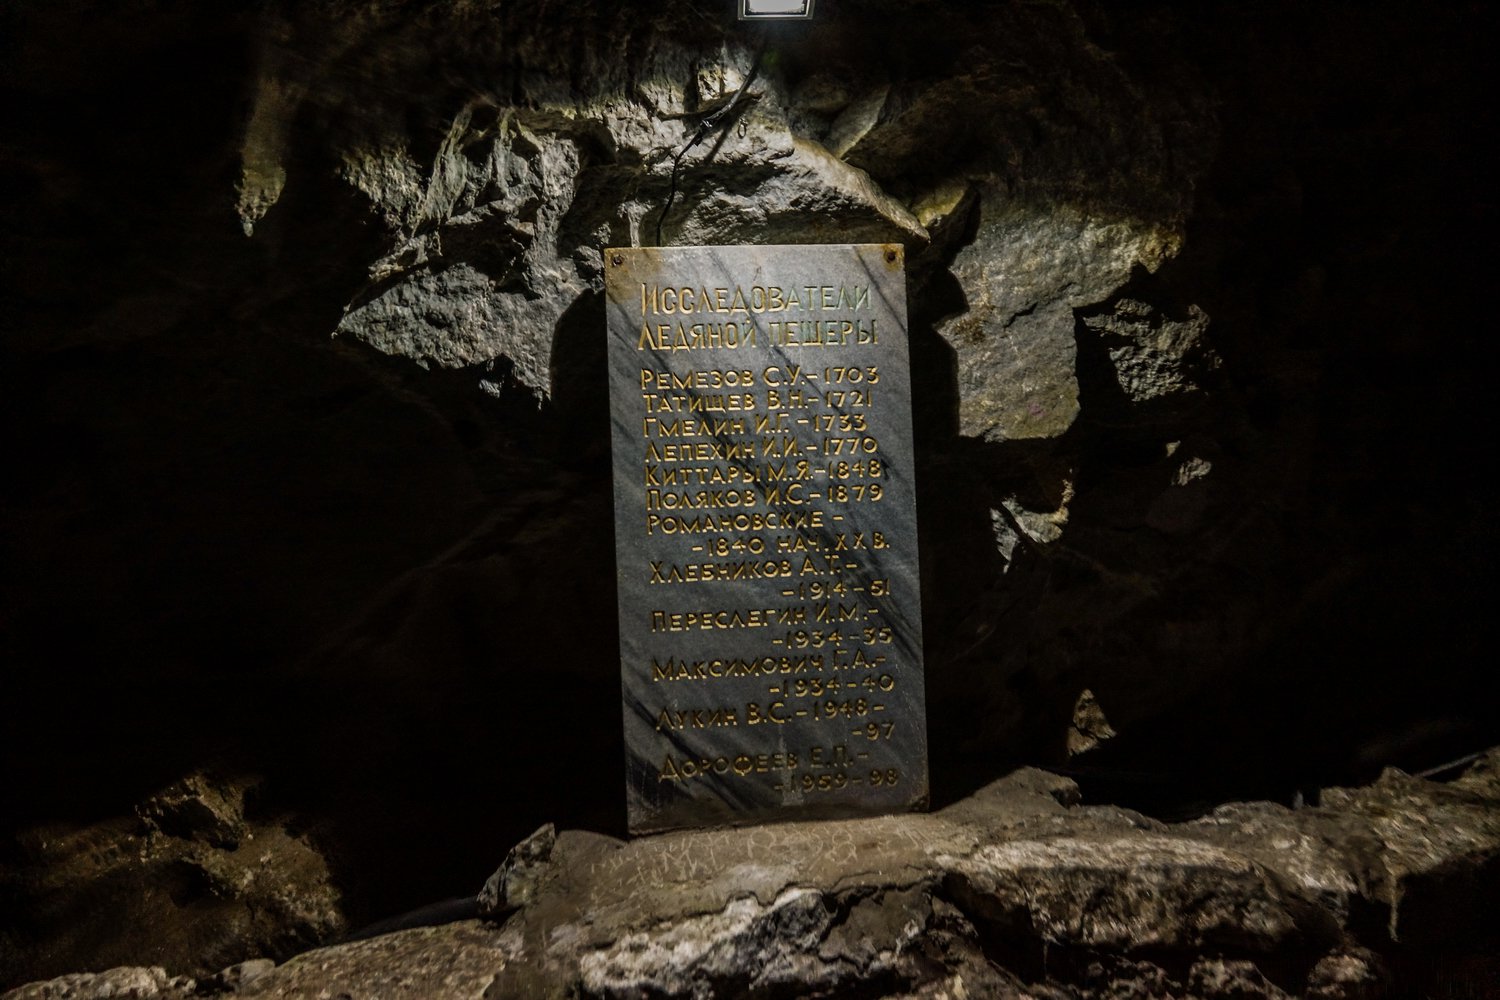 Исследователи
Ледяной пещеры
Ремезов С.У.-1703
Татищев В.Н.-1721
Гмелин И.Г.-1733
Лепехин И.И.-1770
Киттары М.Я.-1848
Поляков И.С.-1879
Романовские -
-1840 нач.XX в.
Хлебников А.Т.-
-1914-51
Переслегин И.М.-
-1934-35
Максимович Г.А.-
-1934-40
Лукин В.С.-1948-
-97
Дорофеев Е.П.-
-1959-98